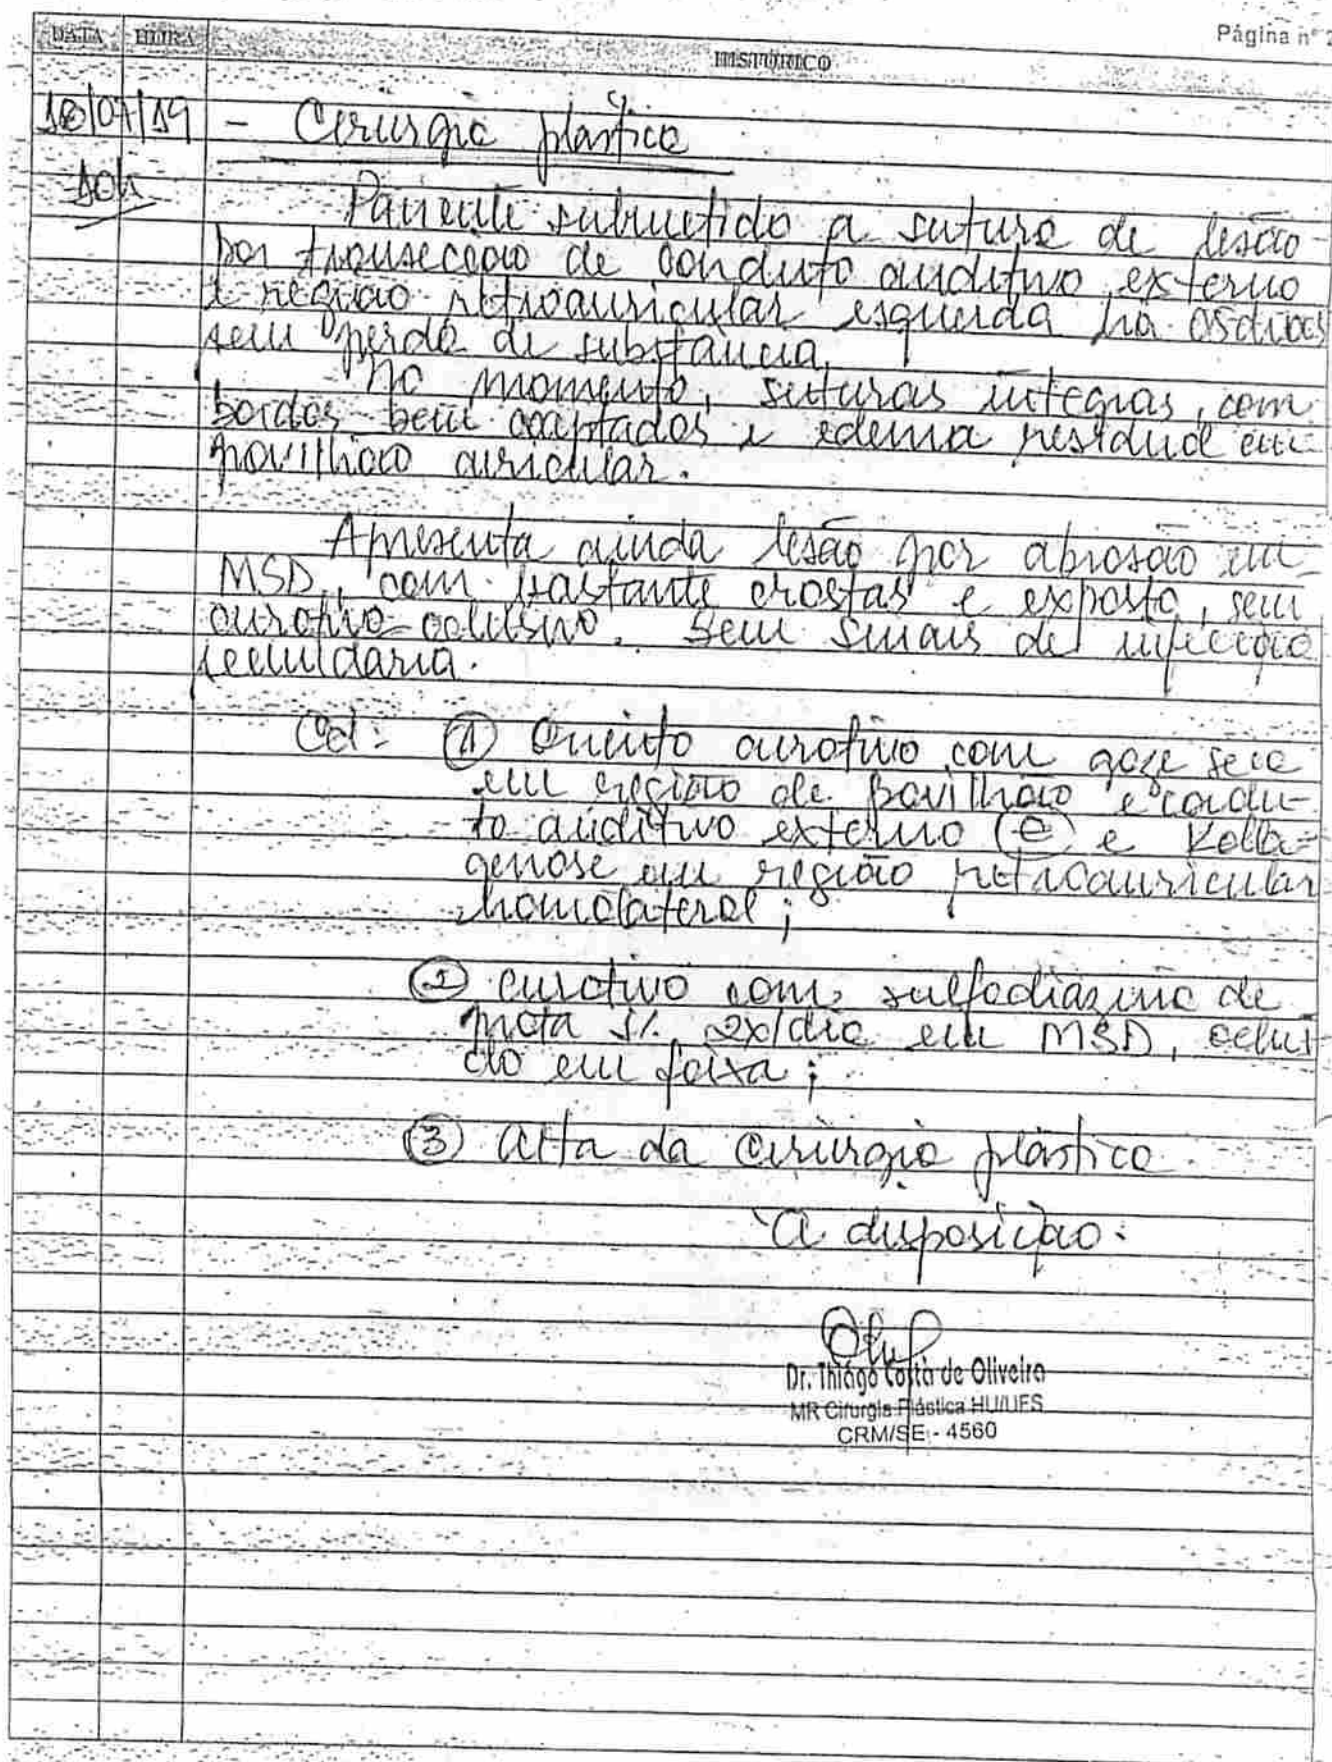 Página nº 2
DATA HORA HISTÓRICO
18/07/19 - Cirurgia plástica
10h
Paciente submetido a sutura de lesão
por transecção de conduto auditivo externo
e região retroauricular esquerda há 05 dias
sem perda de substância.
No momento, suturas íntegras, com
bordos bem coaptados e edema residual em
pavilhão auricular.
Apresenta ainda lesão por abrasão em
MSD, com bastante crostas e exposta, sem
curativo oclusivo. Sem sinais de infecção
secundária.
Cd: ① Oriento curativo com gaze seca
em região de pavilhão e condu-
to auditivo externo (e) e Kolla-
genase em região retroauricular
homolateral;
② curativo com sulfadiazina de
prata 1% 2x/dia em MSD, oclui
do em faixa;
③ alta da cirurgia plástica
À disposição.
Dr. Thiago Costa de Oliveira
MR Cirurgia Plástica HU/UFS
CRM/SE - 4560